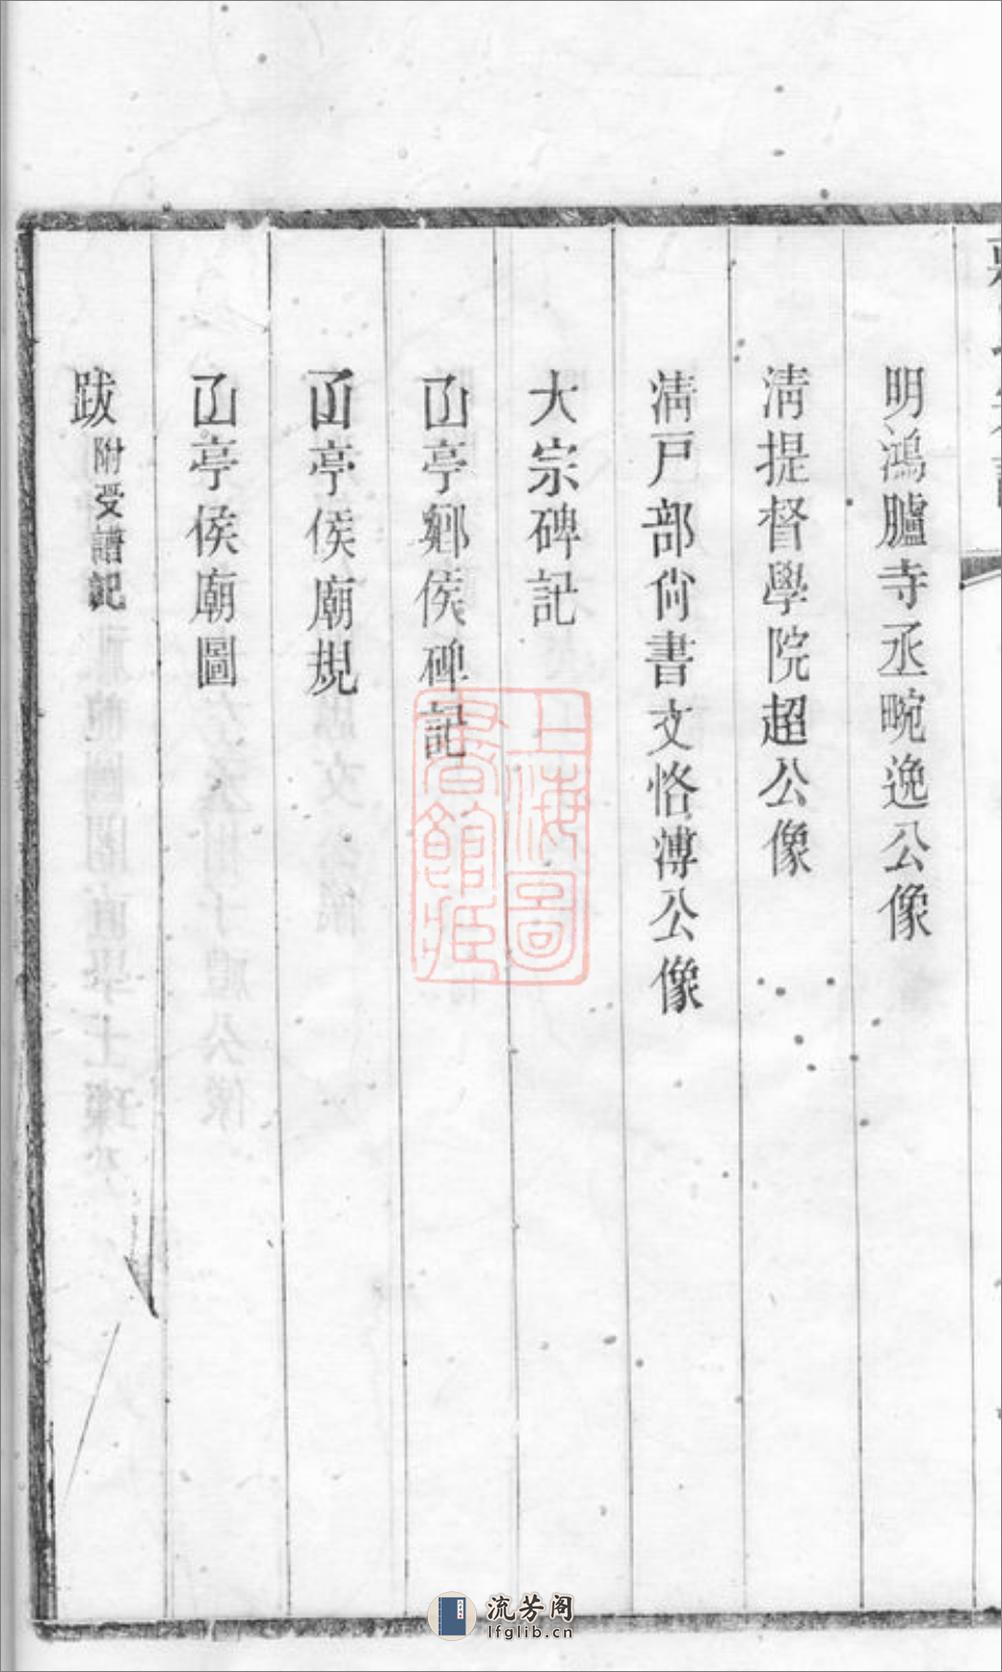 明鴻臚寺丞畹逸公像
清提督學院超公像
清戸部尚書文恪溥公像
大宗碑記
亭鄉侯碑記
亭侯廟規
亭侯廟圖
跋 附受譜記
上海圖書館藏
流芳阁
lfglib.cn